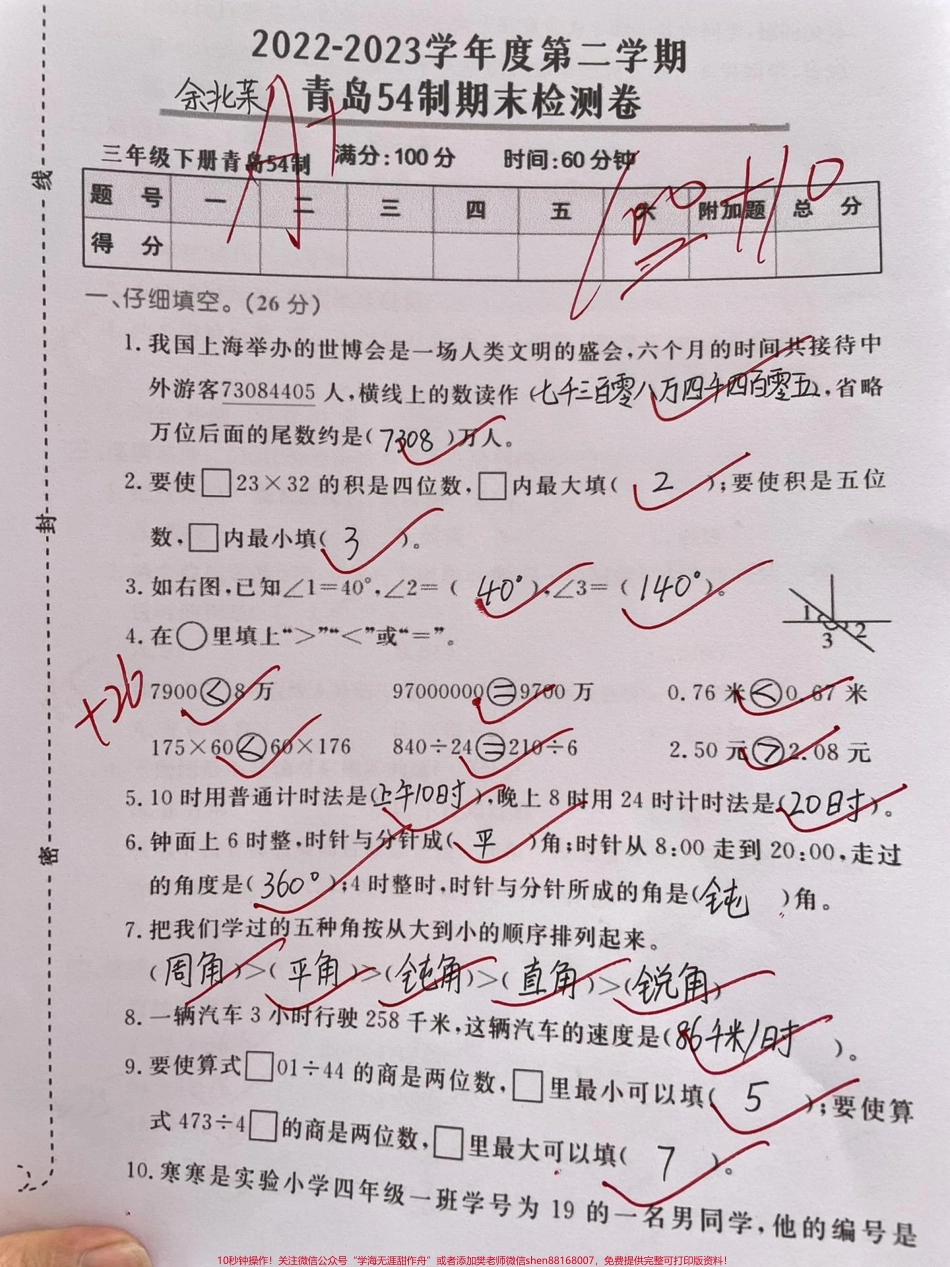 2022-2023学年度第二学期
余兆菜 青岛54制期末检测卷
A+
三年级下册青岛54制 满分:100分 时间:60分钟
100+10
题号 一 二 三 四 五 六 附加题 总分
得分
线
封
密
一、仔细填空。(26分)
1.我国上海举办的世博会是一场人类文明的盛会,六个月的时间共接待中
外游客73084405人,横线上的数读作(七千三百零八万四千四百零五),省略
万位后面的尾数约是(7308)万人。
2.要使□23×32的积是四位数,□内最大填(2);要使积是五位
数,□内最小填(3)。
3.如右图,已知∠1=40°,∠2=(40°),∠3=(140°)。
1 2 3
4.在○里填上“>”“<”或“=”。
+26
7900<8万 97000000=9700万 0.76米<0.87米
175×60<60×176 840÷24=210÷6 2.50元>2.08元
5.10时用普通计时法是(上午10时),晚上8时用24时计时法是(20时)。
6.钟面上6时整,时针与分针成(平)角;时针从8:00走到20:00,走过
的角度是(360°);4时整时,时针与分针所成的角是(钝)角。
7.把我们学过的五种角按从大到小的顺序排列起来。
(周角)>(平角)>(钝角)>(直角)>(锐角)
8.一辆汽车3小时行驶258千米,这辆汽车的速度是(86千米/时)。
9.要使算式□01÷44的商是两位数,□里最小可以填(5);要使算
式473÷4□的商是两位数,□里最大可以填(7)。
10.寒寒是实验小学四年级一班学号为19的一名男同学,他的编号是
10秒钟操作！关注微信公众号“学海无涯甜作舟”或者添加樊老师微信shen88168007，免费提供完整可打印版资料！